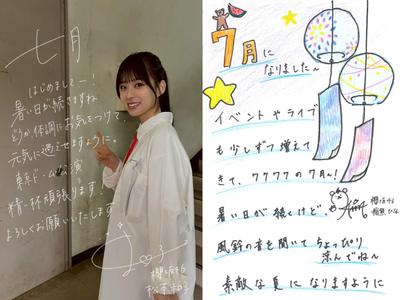 七月
はじめましてー！
暑い日が続きますね
どうか体調にお気をつけて、
元気に過ごせますように。
東京ドーム公演
精一杯頑張ります！
よろしくお願いいたします
櫻坂46
7月に
なりました〜
イベントやライブ
も少しずつ増えて
きて、ワクワクの7月〜！
暑い日が続くけど
櫻坂46
風鈴の音を聞いてちょっぴり
涼んでね〜
素敵な夏になりますように